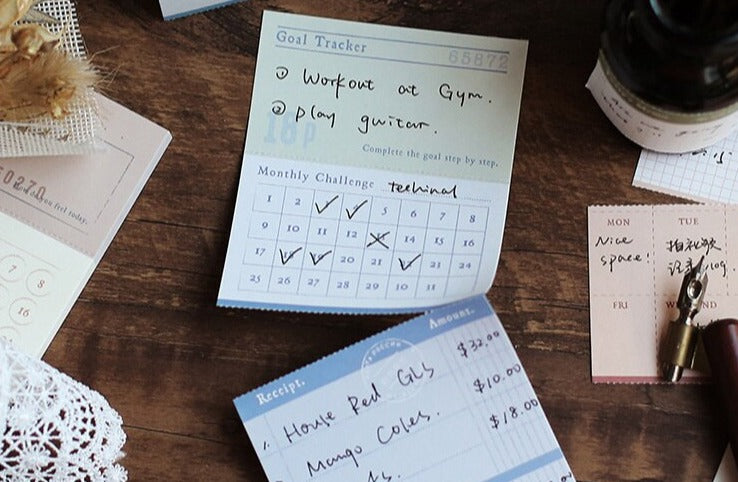 Goal Tracker
65872
① Workout at Gym.
② play guitar.
18p
Complete the goal step by step.
Monthly Challenge
1 2 5 6 7 8
9 10 11 12 14 15 16
17 20 21 23 24
25 26 27 28 29 30 31
Receipt. Amount.
1. House Red GLS $32.00
Mango Coles. $10.00
$18.00
MON TUE
Nice
space!
FRI
50270
you feel today.
7 8
16